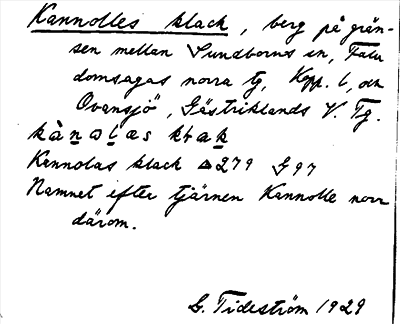 Kannolles klack, berg på grän-
sen mellan Sundborns sn, Falu
domsagas norra tg, Kopp. l, och
Ovansjö, Gästriklands V. Tg.
kànolas klak
Kannolas klack △279 G97
Namnet efter tjärnen Kannolle norr
därom.
G. Tideström 1929